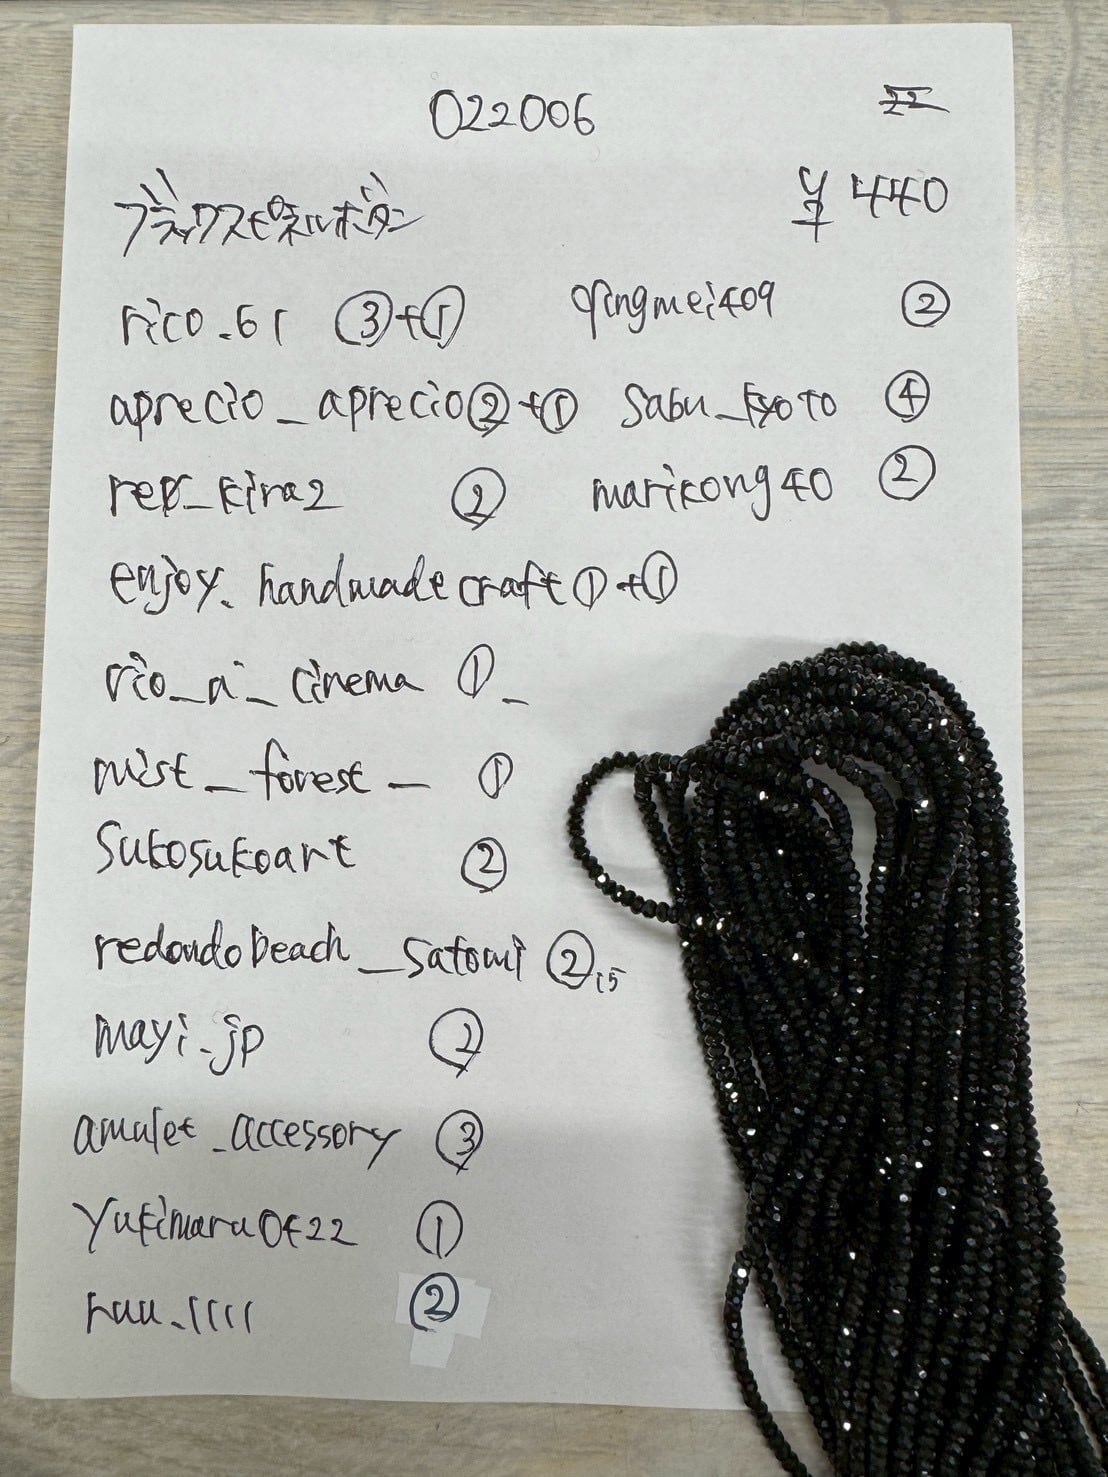 022006
ブラックスピネルボタン ¥440
rico.61 ③+① qingmei409 ②
aprecio_aprecio②+① sabu_kyoto ④
② marikong40 ②
enjoy.handmadecraft①+①
rio_a_cinema ①_
mist_forest_ ①
sukosukoart ②
redondobeach_satomi ②15
mayi.jp ②
amulet_accessory ③
yukimaru0422 ①
ruu.1111 ②